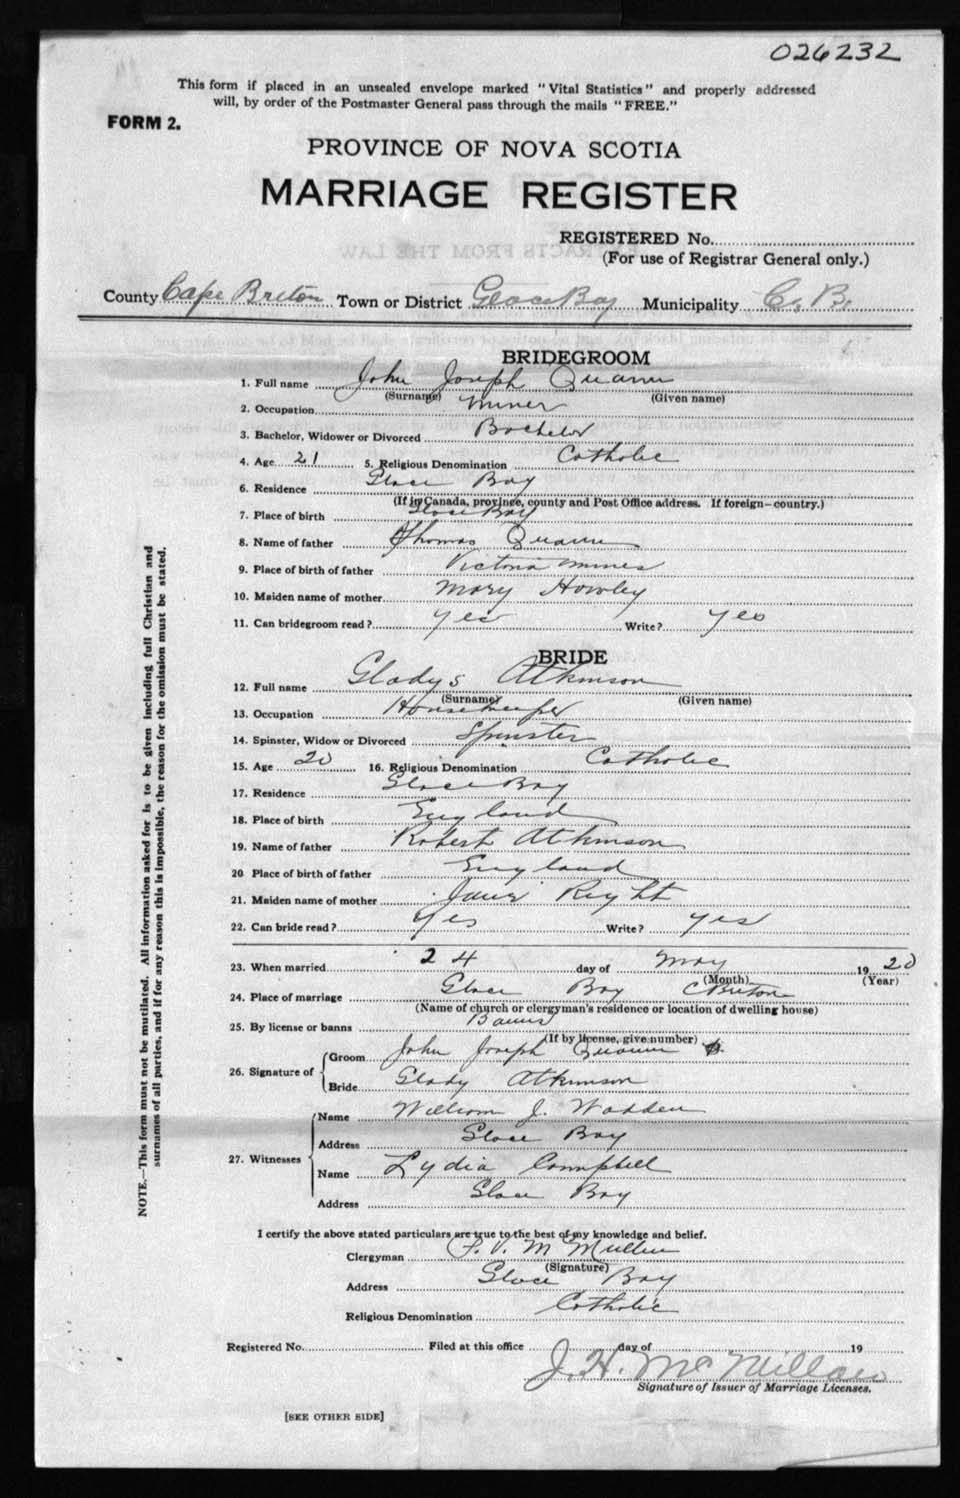 026232
This form if placed in an unsealed envelope marked "Vital Statistics" and properly addressed
will, by order of the Postmaster General pass through the mails "FREE."
FORM 2.
PROVINCE OF NOVA SCOTIA
MARRIAGE REGISTER
REGISTERED No.
(For use of Registrar General only.)
County Cape Breton Town or District Glace Bay Municipality C. B.
BRIDEGROOM
1. Full name John Joseph Quann
(Surname) (Given name)
2. Occupation Miner
3. Bachelor, Widower or Divorced Bachelor
4. Age 21 5. Religious Denomination Catholic
6. Residence Glace Bay
(If in Canada, province, county and Post Office address. If foreign—country.)
7. Place of birth Glace Bay
8. Name of father Thomas Quann
9. Place of birth of father Victoria Mines
10. Maiden name of mother Mary Howley
11. Can bridegroom read? Yes Write? Yes
BRIDE
12. Full name Gladys Atkinson
(Surname) (Given name)
13. Occupation Housekeeper
14. Spinster, Widow or Divorced Spinster
15. Age 20 16. Religious Denomination Catholic
17. Residence Glace Bay
18. Place of birth England
19. Name of father Robert Atkinson
20 Place of birth of father England
21. Maiden name of mother Right
22. Can bride read? Yes Write? Yes
23. When married 24 day of May 1920
(Month) (Year)
24. Place of marriage Glace Bay C Breton
(Name of church or clergyman's residence or location of dwelling house)
25. By license or banns Banns
(If by license, give number)
26. Signature of
Groom John Joseph Quann
Bride Glady Atkinson
27. Witnesses
Name William J. Wadden
Address Glace Bay
Name Lydia Campbell
Address Glace Bay
I certify the above stated particulars are true to the best of my knowledge and belief.
Clergyman M Mullin
(Signature)
Address Glace Bay
Religious Denomination Catholic
Registered No. Filed at this office day of 19
J. H. McMillan
Signature of Issuer of Marriage Licenses.
[SEE OTHER SIDE]
NOTE.—This form must not be mutilated. All information asked for is to be given including full Christian and
surnames of all parties, and if for any reason this is impossible, the reason for the omission must be stated.